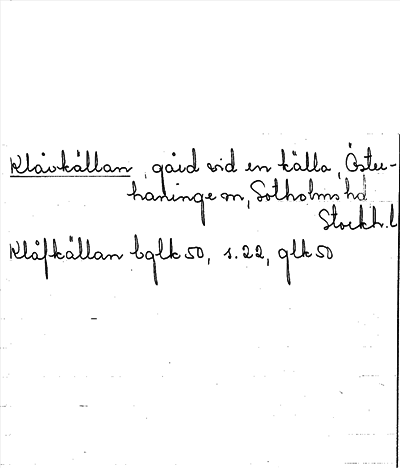 Klåvkällan, gård vid en källa, Öster-
haninge sn, Sotholms hd
Stockh. l
Klåfkällan bglk 50, s. 22, glk 50